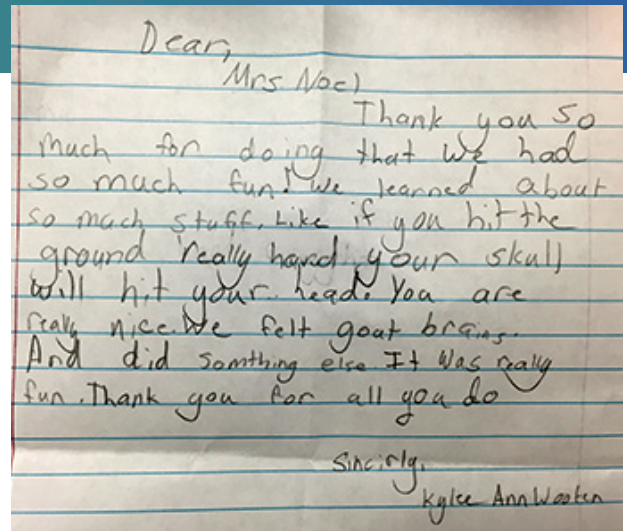 Dear,
Mrs Noel
Thank you so
much for doing that we had
so much fun! We learned about
so much stuff. Like if you hit the
ground really hard your skull
will hit your head. You are
realy nice. We felt goat brains.
And did somthing else It was really
fun. Thank you for all you do
Sincirly,
Kylee Ann Wooten